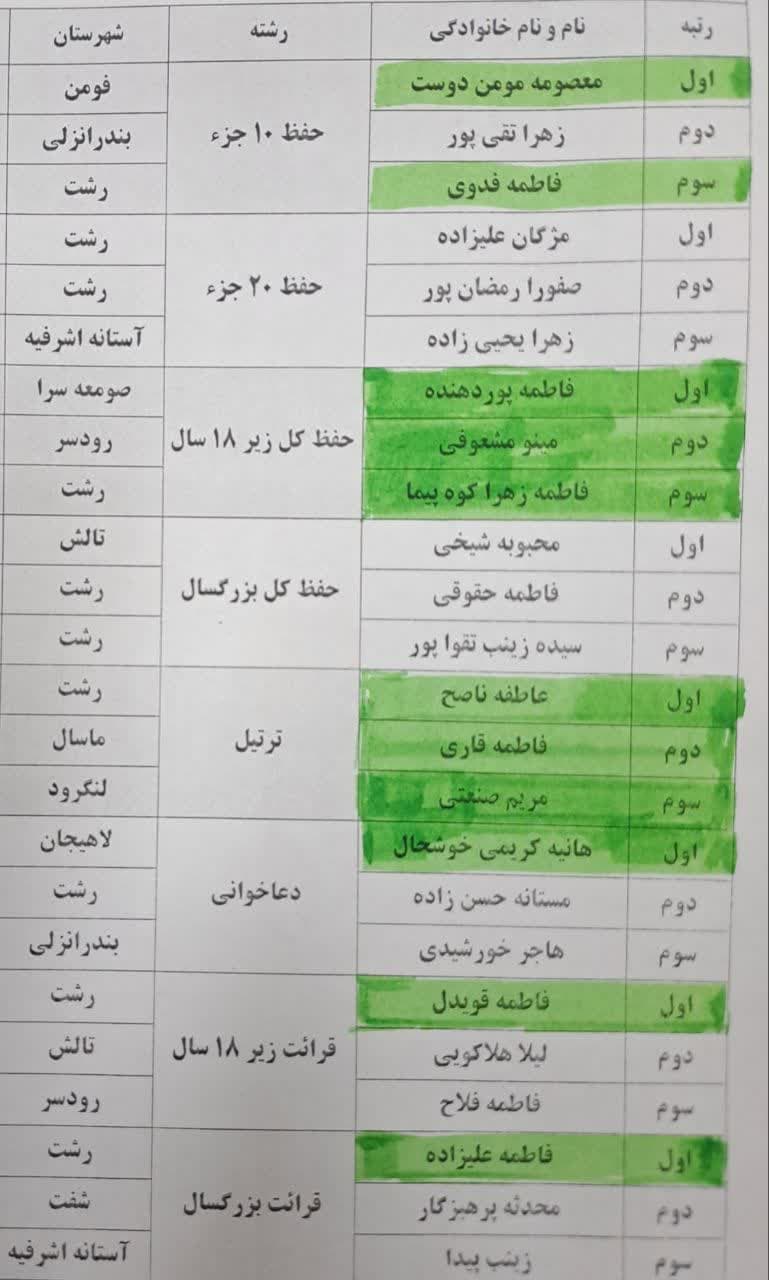 رتبه نام و نام خانوادگی رشته شهرستان
اول معصومه مومن دوست حفظ ۱۰ جزء فومن
دوم زهرا تقی پور بندرانزلی
سوم فاطمه فدوی رشت
اول مژگان علیزاده حفظ ۲۰ جزء رشت
دوم صفورا رمضان پور رشت
سوم زهرا یحیی زاده آستانه اشرفیه
اول فاطمه پوردهنده حفظ کل زیر ۱۸ سال صومعه سرا
دوم مینو مشعوفی رودسر
سوم فاطمه زهرا کوه پیما رشت
اول محبوبه شیخی حفظ کل بزرگسال تالش
دوم فاطمه حقوقی رشت
سوم سیده زینب تقوا پور رشت
اول عاطفه ناصح ترتیل رشت
دوم فاطمه قاری ماسال
سوم مریم صنعتی لنگرود
اول هانیه کریمی خوشحال دعاخوانی لاهیجان
دوم مستانه حسن زاده رشت
سوم هاجر خورشیدی بندرانزلی
اول فاطمه قویدل قرائت زیر ۱۸ سال رشت
دوم لیلا هلاکویی تالش
سوم فاطمه فلاح رودسر
اول فاطمه علیزاده قرائت بزرگسال رشت
دوم محدثه پرهیزگار شفت
سوم زینب پیدا آستانه اشرفیه